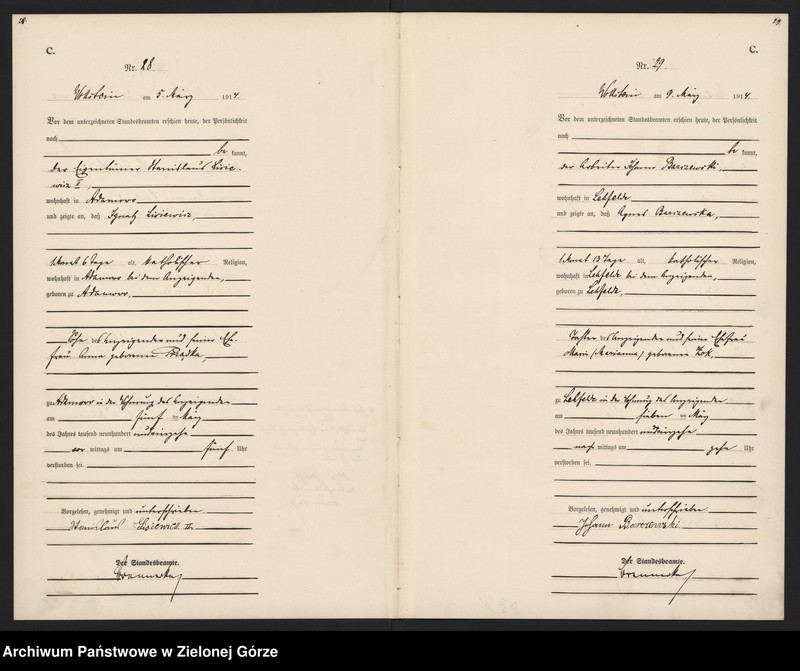 28.
C.
Nr. 28
am 5. März 1914.
Vor dem unterzeichneten Standesbeamten erschien heute, der Persönlichkeit
nach
be kannt,
der Eigentümer Stanislaus Lisie-
wicz II.,
wohnhaft in Adamowo
und zeigte an, daß Ignatz Lisiewicz,
1 Monat 6 Tage alt, katholischer Religion,
wohnhaft in Adamowo bei dem Anzeigenden,
geboren zu Adamowo,
Sohn des Anzeigenden und seiner Ehe-
frau Anna geborenen
zu Adamowo in der Wohnung des Anzeigenden
am fünf ten März
des Jahres tausend neunhundert undvierzehn
vor mittags um fünf Uhr
verstorben sei.
Vorgelesen, genehmigt und unterschrieben.
Stanislaus Lisiewicz II.
Der Standesbeamte.
29.
C.
Nr. 29.
am 9. März 1914.
Vor dem unterzeichneten Standesbeamten erschien heute, der Persönlichkeit
nach
be kannt,
der Arbeiter Johann
wohnhaft in Lehfelde
und zeigte an, daß Agnes
1 Monat 13 Tage alt, katholischer Religion,
wohnhaft in Lehfelde bei dem Anzeigenden,
geboren zu Lehfelde,
Tochter des Anzeigenden und seiner Ehefrau
Marie (Marianna) geborenen Zok,
zu Lehfelde in der Wohnung des Anzeigenden
am sieben ten März
des Jahres tausend neunhundert undvierzehn
nach mittags um zehn Uhr
verstorben sei.
Vorgelesen, genehmigt und unterschrieben.
Johann
Der Standesbeamte.
Archiwum Państwowe w Zielonej Górze